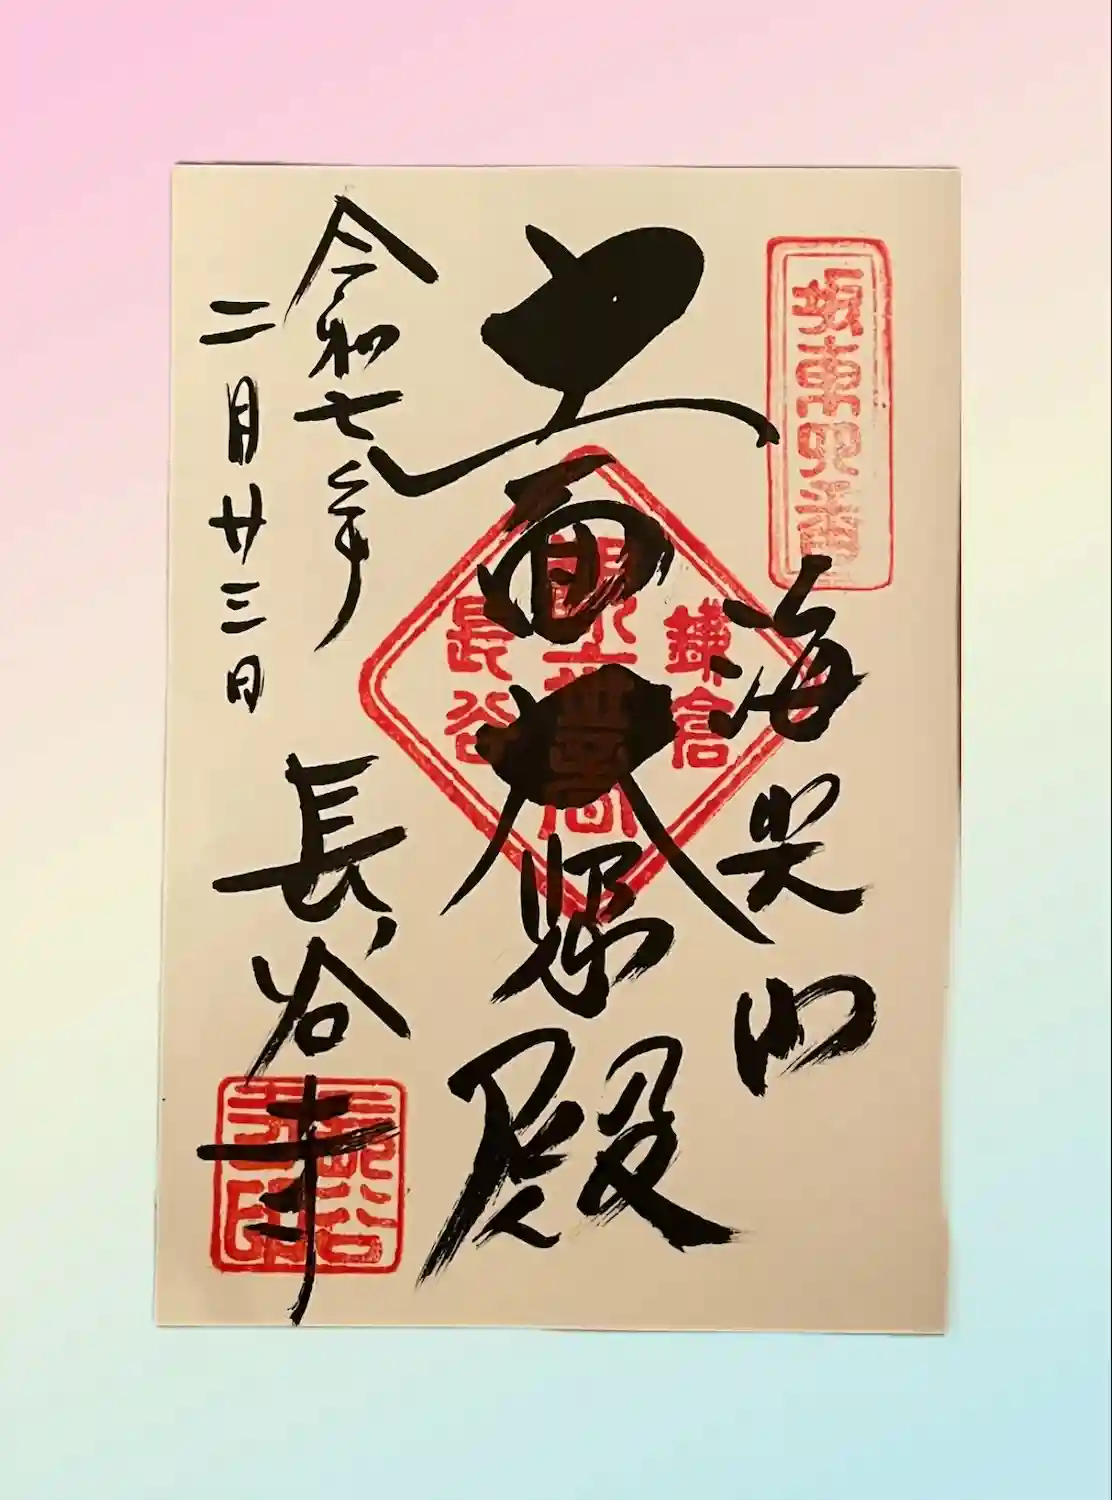 坂東四番
海光山
十一面大悲殿
鎌倉
長谷
令和七年
二月廿三日
長谷寺
長谷寺印